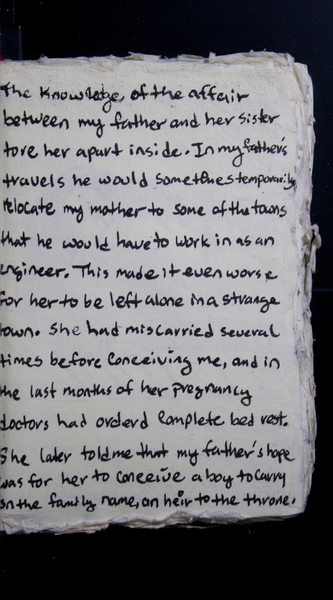 The Knowledge, of the affair
between my father and her sister
tore her apart inside. In my father's
travels he would sometimes temporarily
relocate my mother to some of the towns
that he would have to work in as an
engineer. This made it even worse
for her to be left alone in a strange
town. She had miscarried several
times before Conceiving me, and in
the last months of her pregnancy
doctors had orderd Complete bed rest.
She later told me that my father's hope
was for her to conceive a boy to carry
on the family name, an heir to the throne.